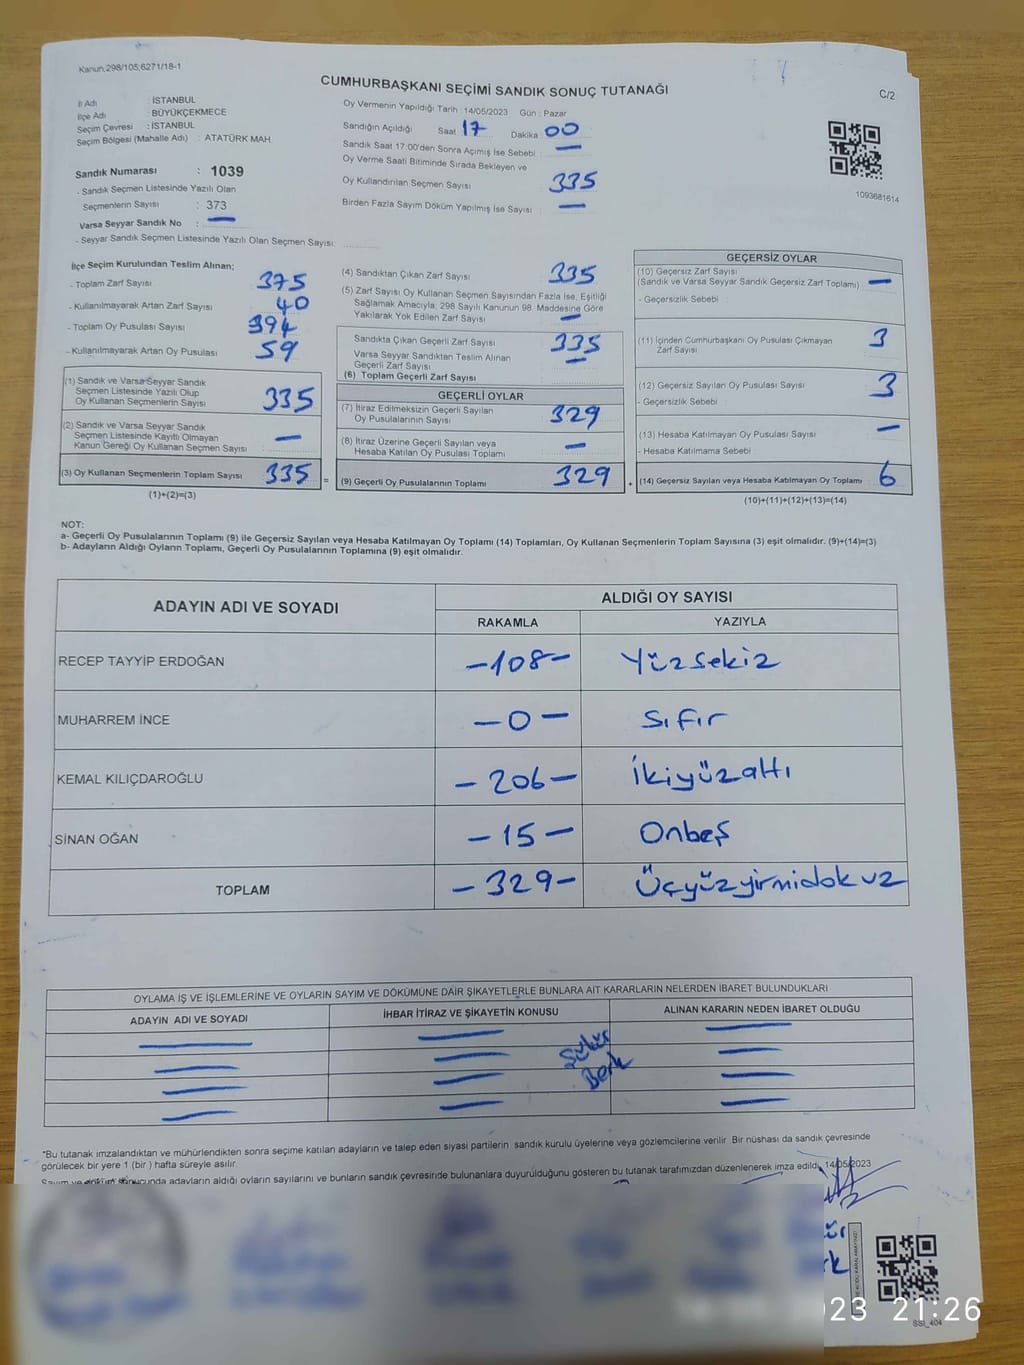 Kanun:298/105;6271/18-1
CUMHURBAŞKANI SEÇİMİ SANDIK SONUÇ TUTANAĞI
C/2
İl Adı : İSTANBUL
İlçe Adı : BÜYÜKÇEKMECE
Seçim Çevresi : İSTANBUL
Seçim Bölgesi (Mahalle Adı) : ATATÜRK MAH
Sandık Numarası : 1039
- Sandık Seçmen Listesinde Yazılı Olan
Seçmenlerin Sayısı : 373
Varsa Seyyar Sandık No : —
- Seyyar Sandık Seçmen Listesinde Yazılı Olan Seçmen Sayısı:
Oy Vermenin Yapıldığı Tarih : 14/05/2023 Gün : Pazar
Sandığın Açıldığı Saat 17 Dakika 00
Sandık Saat 17:00'den Sonra Açılmış İse Sebebi : —
Oy Verme Saati Bitiminde Sırada Bekleyen ve
Oy Kullandırılan Seçmen Sayısı 335
Birden Fazla Sayım Döküm Yapılmış İse Sayısı : —
1093681614
İlçe Seçim Kurulundan Teslim Alınan;
- Toplam Zarf Sayısı 375
- Kullanılmayarak Artan Zarf Sayısı 40
- Toplam Oy Pusulası Sayısı 394
- Kullanılmayarak Artan Oy Pusulası 59
(1) Sandık ve Varsa Seyyar Sandık
Seçmen Listesinde Yazılı Olup
Oy Kullanan Seçmenlerin Sayısı 335
(2) Sandık ve Varsa Seyyar Sandık
Seçmen Listesinde Kayıtlı Olmayan
Kanun Gereği Oy Kullanan Seçmen Sayısı : —
(3) Oy Kullanan Seçmenlerin Toplam Sayısı 335
(1)+(2)=(3)
=
(4) Sandıktan Çıkan Zarf Sayısı 335
(5) Zarf Sayısı Oy Kullanan Seçmen Sayısından Fazla İse, Eşitliği
Sağlamak Amacıyla, 298 Sayılı Kanunun 98. Maddesine Göre
Yakılarak Yok Edilen Zarf Sayısı —
Sandıkta Çıkan Geçerli Zarf Sayısı 335
Varsa Seyyar Sandıktan Teslim Alınan
Geçerli Zarf Sayısı : —
(6) Toplam Geçerli Zarf Sayısı
GEÇERLİ OYLAR
(7) İtiraz Edilmeksizin Geçerli Sayılan
Oy Pusulalarının Sayısı 329
(8) İtiraz Üzerine Geçerli Sayılan veya
Hesaba Katılan Oy Pusulası Toplamı —
(9) Geçerli Oy Pusulalarının Toplamı 329
+
GEÇERSİZ OYLAR
(10) Geçersiz Zarf Sayısı
(Sandık ve Varsa Seyyar Sandık Geçersiz Zarf Toplamı) —
- Geçersizlik Sebebi :
(11) İçinden Cumhurbaşkanı Oy Pusulası Çıkmayan
Zarf Sayısı 3
(12) Geçersiz Sayılan Oy Pusulası Sayısı 3
- Geçersizlik Sebebi :
(13) Hesaba Katılmayan Oy Pusulası Sayısı —
- Hesaba Katılmama Sebebi :
(14) Geçersiz Sayılan veya Hesaba Katılmayan Oy Toplamı 6
(10)+(11)+(12)+(13)=(14)
NOT:
a- Geçerli Oy Pusulalarının Toplamı (9) ile Geçersiz Sayılan veya Hesaba Katılmayan Oy Toplamı (14) Toplamları, Oy Kullanan Seçmenlerin Toplam Sayısına (3) eşit olmalıdır. (9)+(14)=(3)
b- Adayların Aldığı Oyların Toplamı, Geçerli Oy Pusulalarının Toplamına (9) eşit olmalıdır.
ADAYIN ADI VE SOYADI ALDIĞI OY SAYISI
RAKAMLA YAZIYLA
RECEP TAYYİP ERDOĞAN -108- Yüzsekiz
MUHARREM İNCE -0- Sıfır
KEMAL KILIÇDAROĞLU -206- İkiyüzaltı
SİNAN OĞAN -15- Onbeş
TOPLAM -329- Üçyüzyirmidokuz
OYLAMA İŞ VE İŞLEMLERİNE VE OYLARIN SAYIM VE DÖKÜMÜNE DAİR ŞİKAYETLERLE BUNLARA AİT KARARLARIN NELERDEN İBARET BULUNDUKLARI
ADAYIN ADI VE SOYADI İHBAR İTİRAZ VE ŞİKAYETİN KONUSU ALINAN KARARIN NEDEN İBARET OLDUĞU
Berk
*Bu tutanak imzalandıktan ve mühürlendikten sonra seçime katılan adayların ve talep eden siyasi partilerin sandık kurulu üyelerine veya gözlemcilerine verilir. Bir nüshası da sandık çevresinde
görülecek bir yere 1 (bir ) hafta süreyle asılır.
Sayım ve döküm sonucunda adayların aldığı oyların sayılarını ve bunların sandık çevresinde bulunanlara duyurulduğunu gösteren bu tutanak tarafımızdan düzenlenerek imza edildi. 14/05/2023
023 21:26
SSI_404